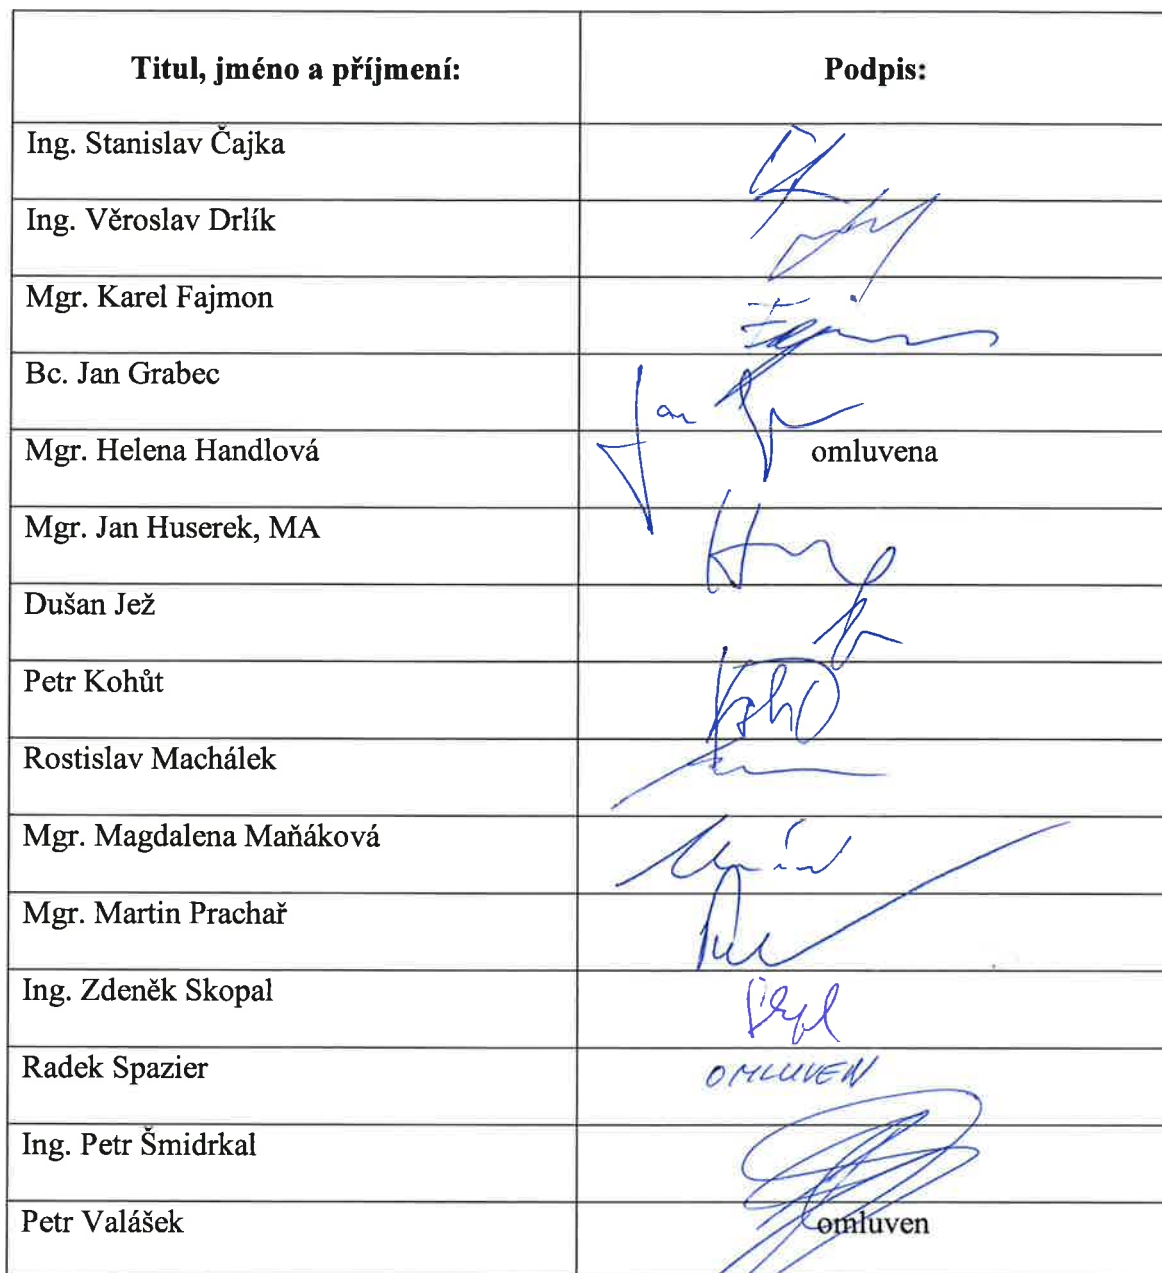 Titul, jméno a příjmení: Podpis:
Ing. Stanislav Čajka
Ing. Věroslav Drlík
Mgr. Karel Fajmon
Bc. Jan Grabec Jan
Mgr. Helena Handlová omluvena
Mgr. Jan Huserek, MA
Dušan Jež
Petr Kohůt
Rostislav Machálek
Mgr. Magdalena Maňáková
Mgr. Martin Prachař
Ing. Zdeněk Skopal
Radek Spazier OMLUVEN
Ing. Petr Šmidrkal
Petr Valášek omluven